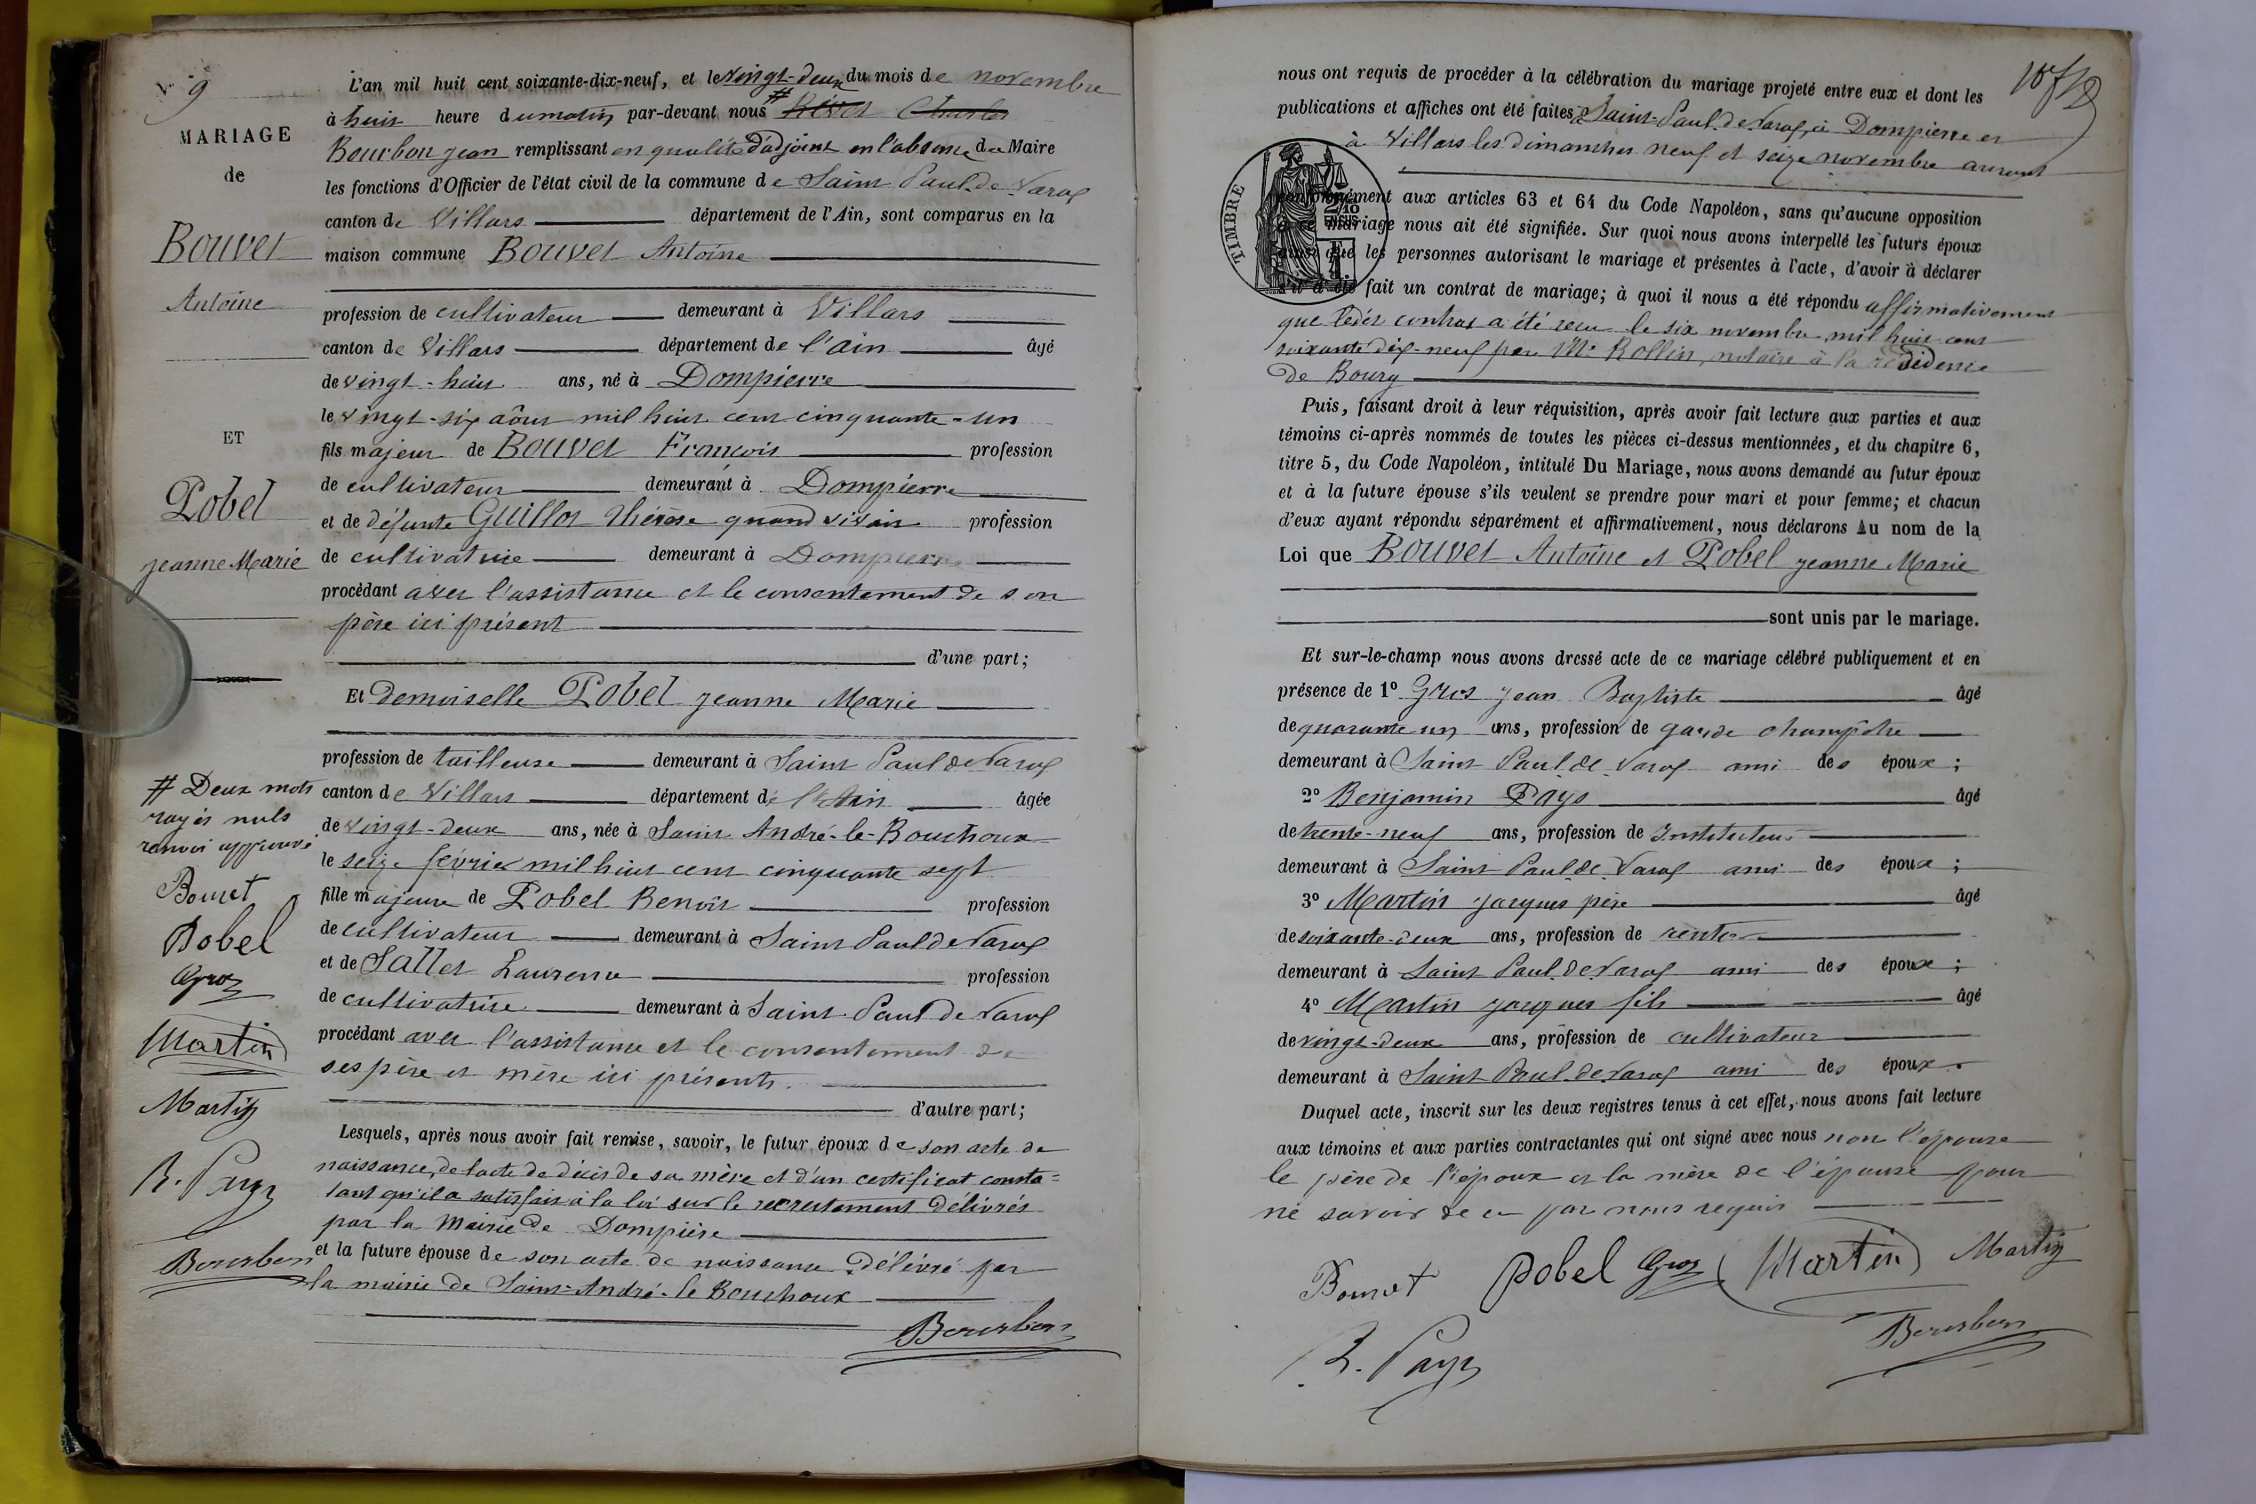 N° 9
MARIAGE
de
Bouvet
Antoine
ET
Pobel
jeanne Marie
# Deux mots
rayés nuls
renvoi approuvé
Bouvet
Pobel
Gros
Martin
Martin
B. Pays
Bourbon
L'an mil huit cent soixante-dix-neuf, et le vingt-deux du mois de novembre
à huit heure du matin par-devant nous # Charles
Bourbon jean remplissant en qualité d'adjoint en l'absence du Maire
les fonctions d'Officier de l'état civil de la commune de Saint Paul de Varax
canton de Villars département de l'Ain, sont comparus en la
maison commune Bouvet Antoine
profession de cultivateur demeurant à Villars
canton de Villars département de l'ain âgé
de vingt-huit ans, né à Dompierre
le vingt-six août mil huit cent cinquante-un
fils majeur de Bouvet François profession
de cultivateur demeurant à Dompierre
et de défunte Guillot Thérèse quand vivait profession
de cultivatrice demeurant à Dompierre
procédant avec l'assistance et le consentement de son
père ici présent
d'une part;
Et demoiselle Pobel jeanne Marie
profession de tailleuse demeurant à Saint Paul de Varax
canton de Villars département de l'Ain âgée
de vingt-deux ans, née à Saint André-le-Bouchoux
le seize février mil huit cent cinquante sept
fille majeure de Pobel Benoit profession
de cultivateur demeurant à Saint Paul de Varax
et de Sallet Laurence profession
de cultivatrice demeurant à Saint Paul de Varax
procédant avec l'assistance et le consentement de
ses père et mère ici présents.
d'autre part;
Lesquels, après nous avoir fait remise, savoir, le futur époux de son acte de
naissance, de l'acte de décès de sa mère et d'un certificat consta=
tant qu'il a satisfait à la loi sur le recrutement délivrés
par la Mairie de Dompierre
et la future épouse de son acte de naissance délivré par
la mairie de Saint-André-le Bouchoux
Bourbon
nous ont requis de procéder à la célébration du mariage projeté entre eux et dont les
publications et affiches ont été faites à Saint-Paul de Varax, à Dompierre et
à Villars les dimanches neuf et seize novembre courant
TIMBRE
conformément aux articles 63 et 64 du Code Napoléon, sans qu'aucune opposition
à ce mariage nous ait été signifiée. Sur quoi nous avons interpellé les futurs époux
ainsi que les personnes autorisant le mariage et présentes à l'acte, d'avoir à déclarer
s'il a été fait un contrat de mariage; à quoi il nous a été répondu affirmativement
que ledit contrat a été reçu le six novembre mil huit cent
soixante dix-neuf par Me Rollin, notaire à la résidence
de Bourg
Puis, faisant droit à leur réquisition, après avoir fait lecture aux parties et aux
témoins ci-après nommés de toutes les pièces ci-dessus mentionnées, et du chapitre 6,
titre 5, du Code Napoléon, intitulé Du Mariage, nous avons demandé au futur époux
et à la future épouse s'ils veulent se prendre pour mari et pour femme; et chacun
d'eux ayant répondu séparément et affirmativement, nous déclarons Au nom de la
Loi que Bouvet Antoine et Pobel jeanne Marie
sont unis par le mariage.
Et sur-le-champ nous avons dressé acte de ce mariage célébré publiquement et en
présence de 1° Gros jean Baptiste âgé
de quarante un ans, profession de garde champêtre
demeurant à Saint Paul de Varax ami des époux;
2° Benjamin Pays âgé
de trente-neuf ans, profession de Instituteur
demeurant à Saint Paul de Varax ami des époux;
3° Martin jacques père âgé
de soixante-deux ans, profession de rentier
demeurant à Saint Paul de Varax ami des époux;
4° Martin jacques fils âgé
de vingt-deux ans, profession de cultivateur
demeurant à Saint Paul de Varax ami des époux.
Duquel acte, inscrit sur les deux registres tenus à cet effet, nous avons fait lecture
aux témoins et aux parties contractantes qui ont signé avec nous non l'épouse
le père de l'époux et la mère de l'épouse pour
ne savoir de ce par nous requis
Bouvet Pobel Gros Martin Martin
B. Pays Bourbon